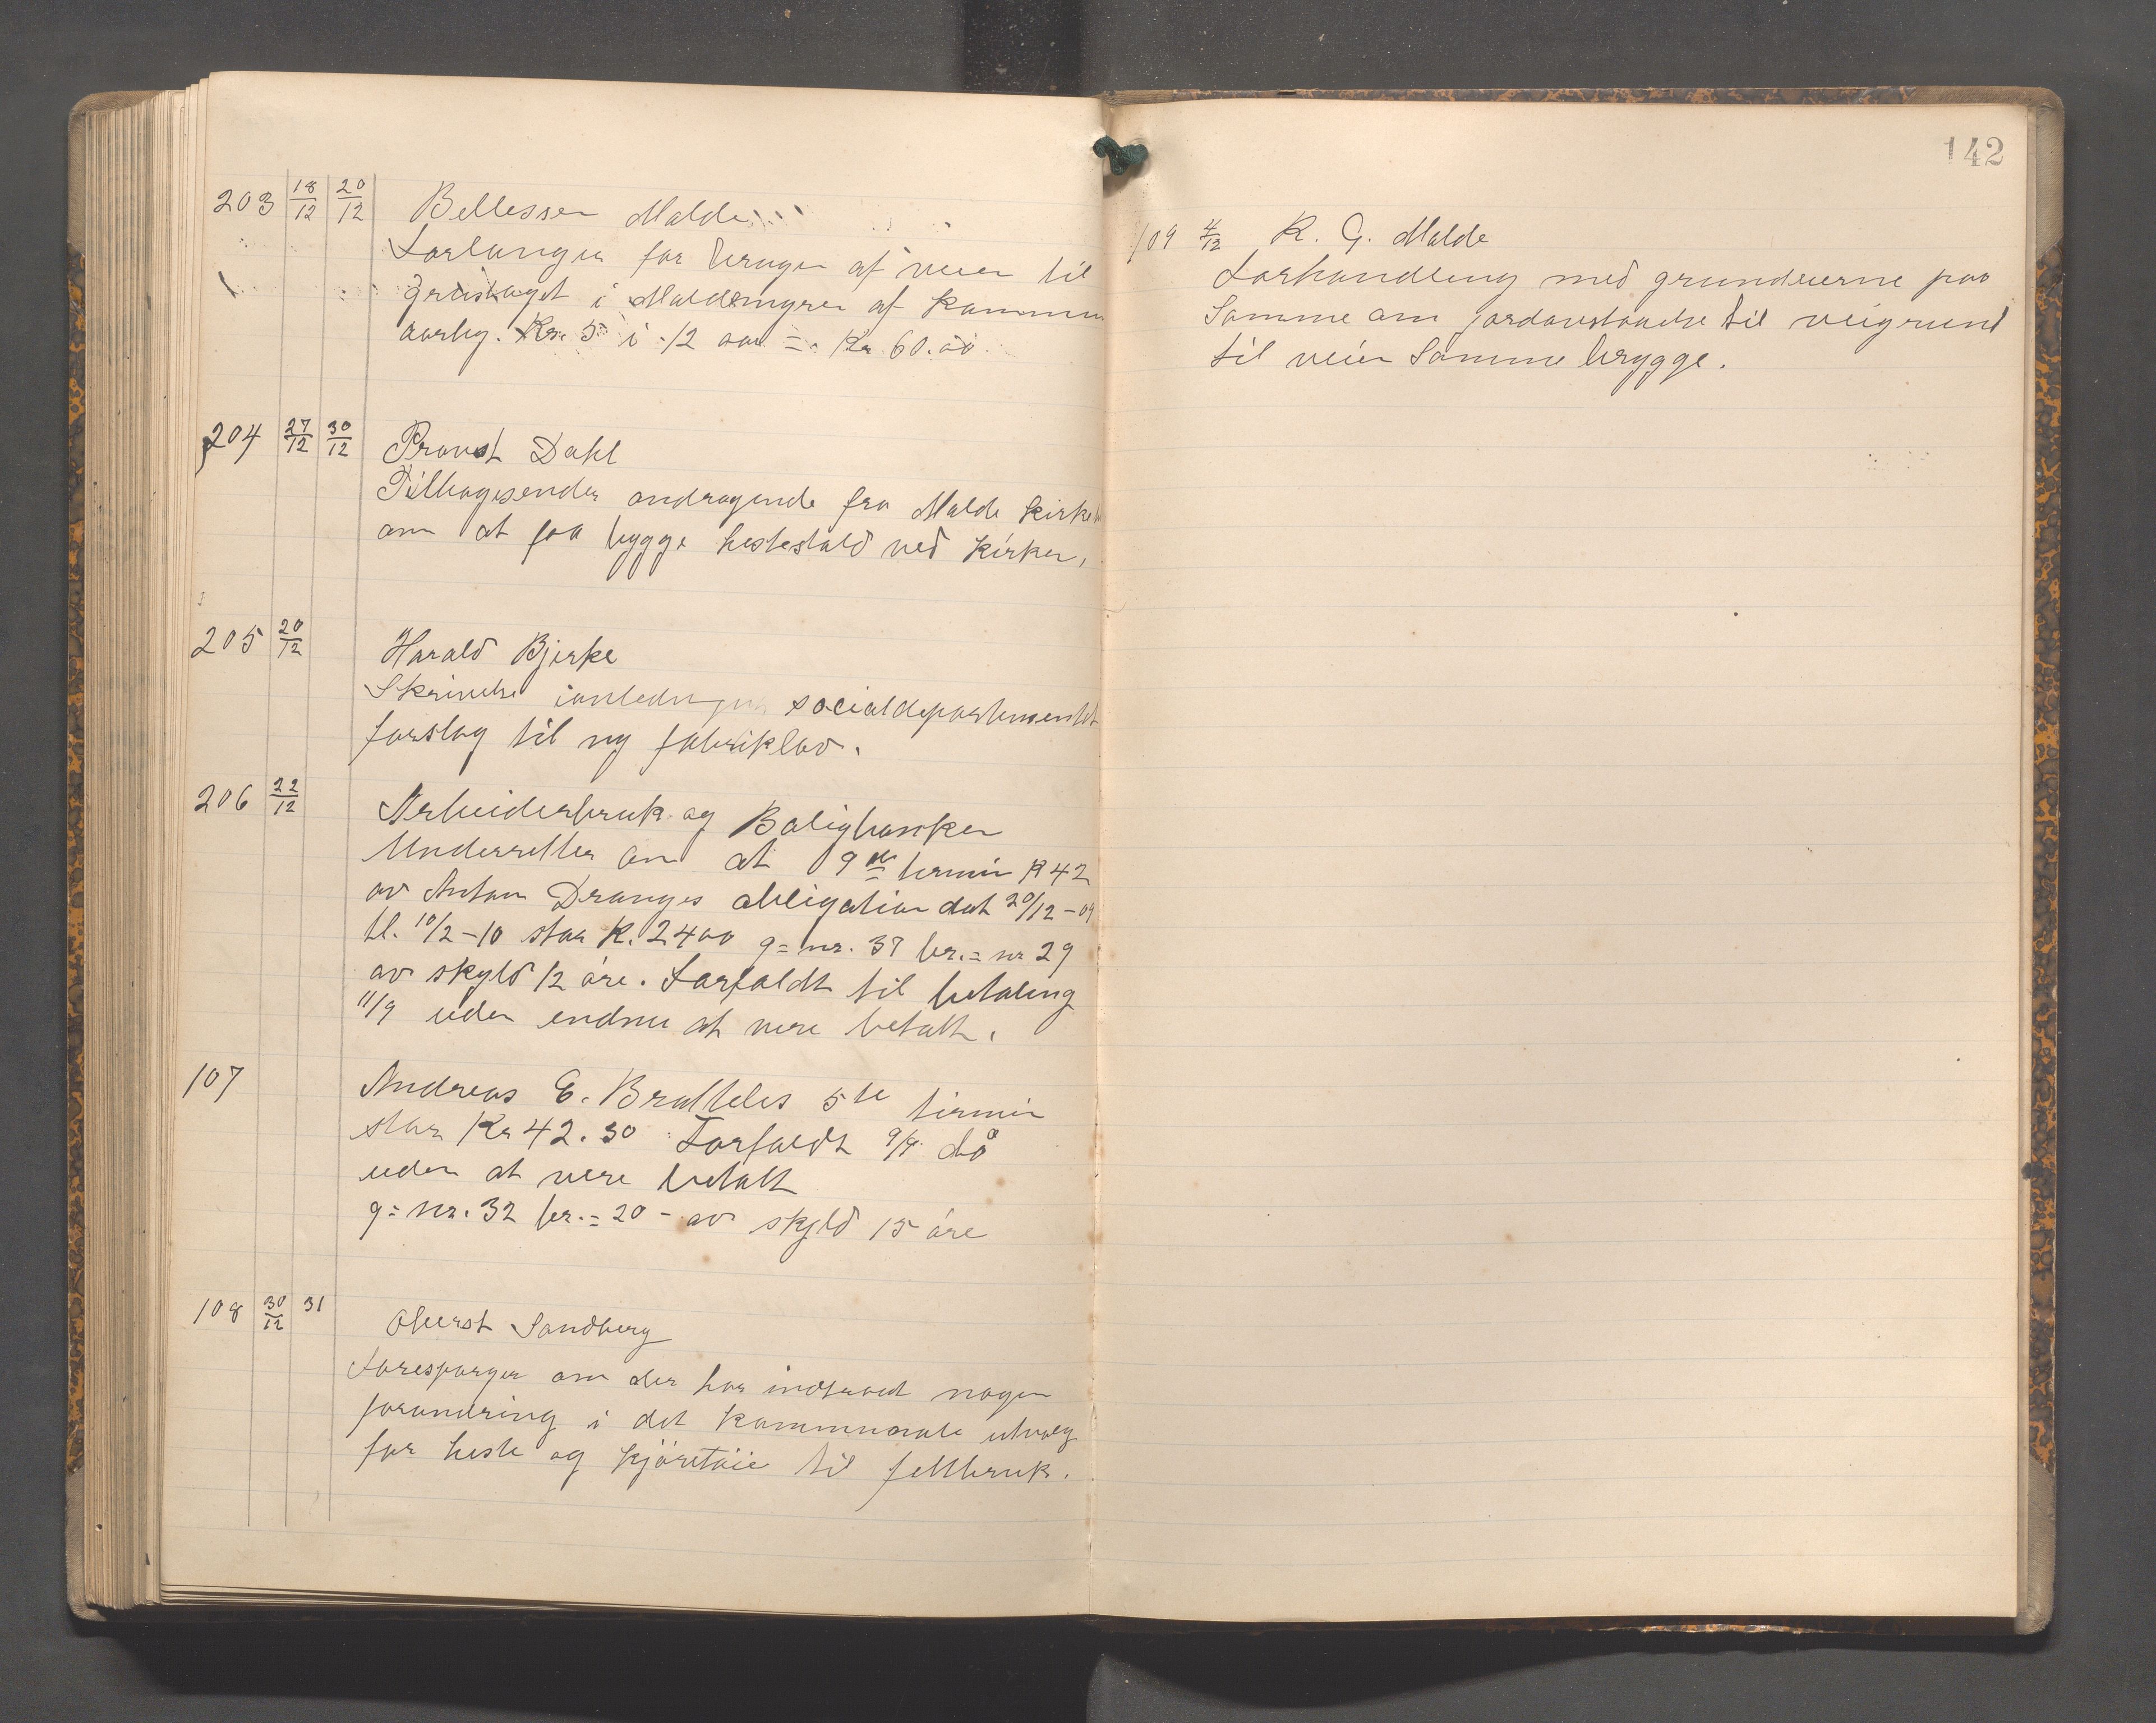 203 18/12 20/12 Bellessen Malde
Forlanger for brugen af veien til
grustaget i Maldemyren af kommun
aarlig. Kr. 5 i 12 aar = Kr 60.00
204 27/12 30/12 Provst Dahl
Tilbagesender andragende fra Malde kirke
om at faa bygge hestestald ved kirken,
205 20/12 Harald Bjerke
Skrivelse ianledningen socialdepartementet
forslag til ny fabriklov.
206 22/12 Arbeiderbruk og Boligbanken
Underretter om at 9de termin K 42
av Anton Dranges obligation dat 20/12-09
tl. 10/2-10 stor K. 2400 g=nr. 37 br.=nr 29
av skyld 12 öre. Forfaldt til betaling
11/9 uden endnu at vere betalt.
107 Andreas E. Brattelis 5te termin
stor Kr 42.30 Forfaldt 9/9 do
uden at vere betalt
g=nr. 32 br.=20 - av skyld 15 öre
108 30/12 31 Oberst Sandberg
Forespørger om der har indtraadt nogen
forandring i det kommunale utvalg
for heste og kjöretöie til feltbruk.
142
109 4/12 K. G. Malde
Forhandling med grundeierne paa
Sømme om jordavstaaelse til veigrund
til veien Sømme brygge.